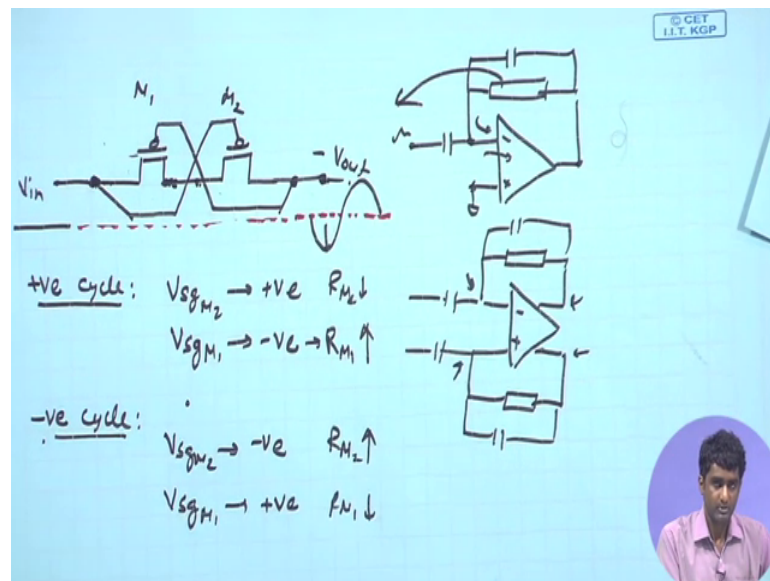 © CET
I.I.T. KGP
M₁ M₂
Vin
- Vout
+ve cycle: VsgM₂ → +ve RM₂↓
VsgM₁ → -ve → RM₁↑
-ve cycle:
VsgM₂ → -ve RM₂↑
VsgM₁ → +ve RM₁↓
-
+
-
+